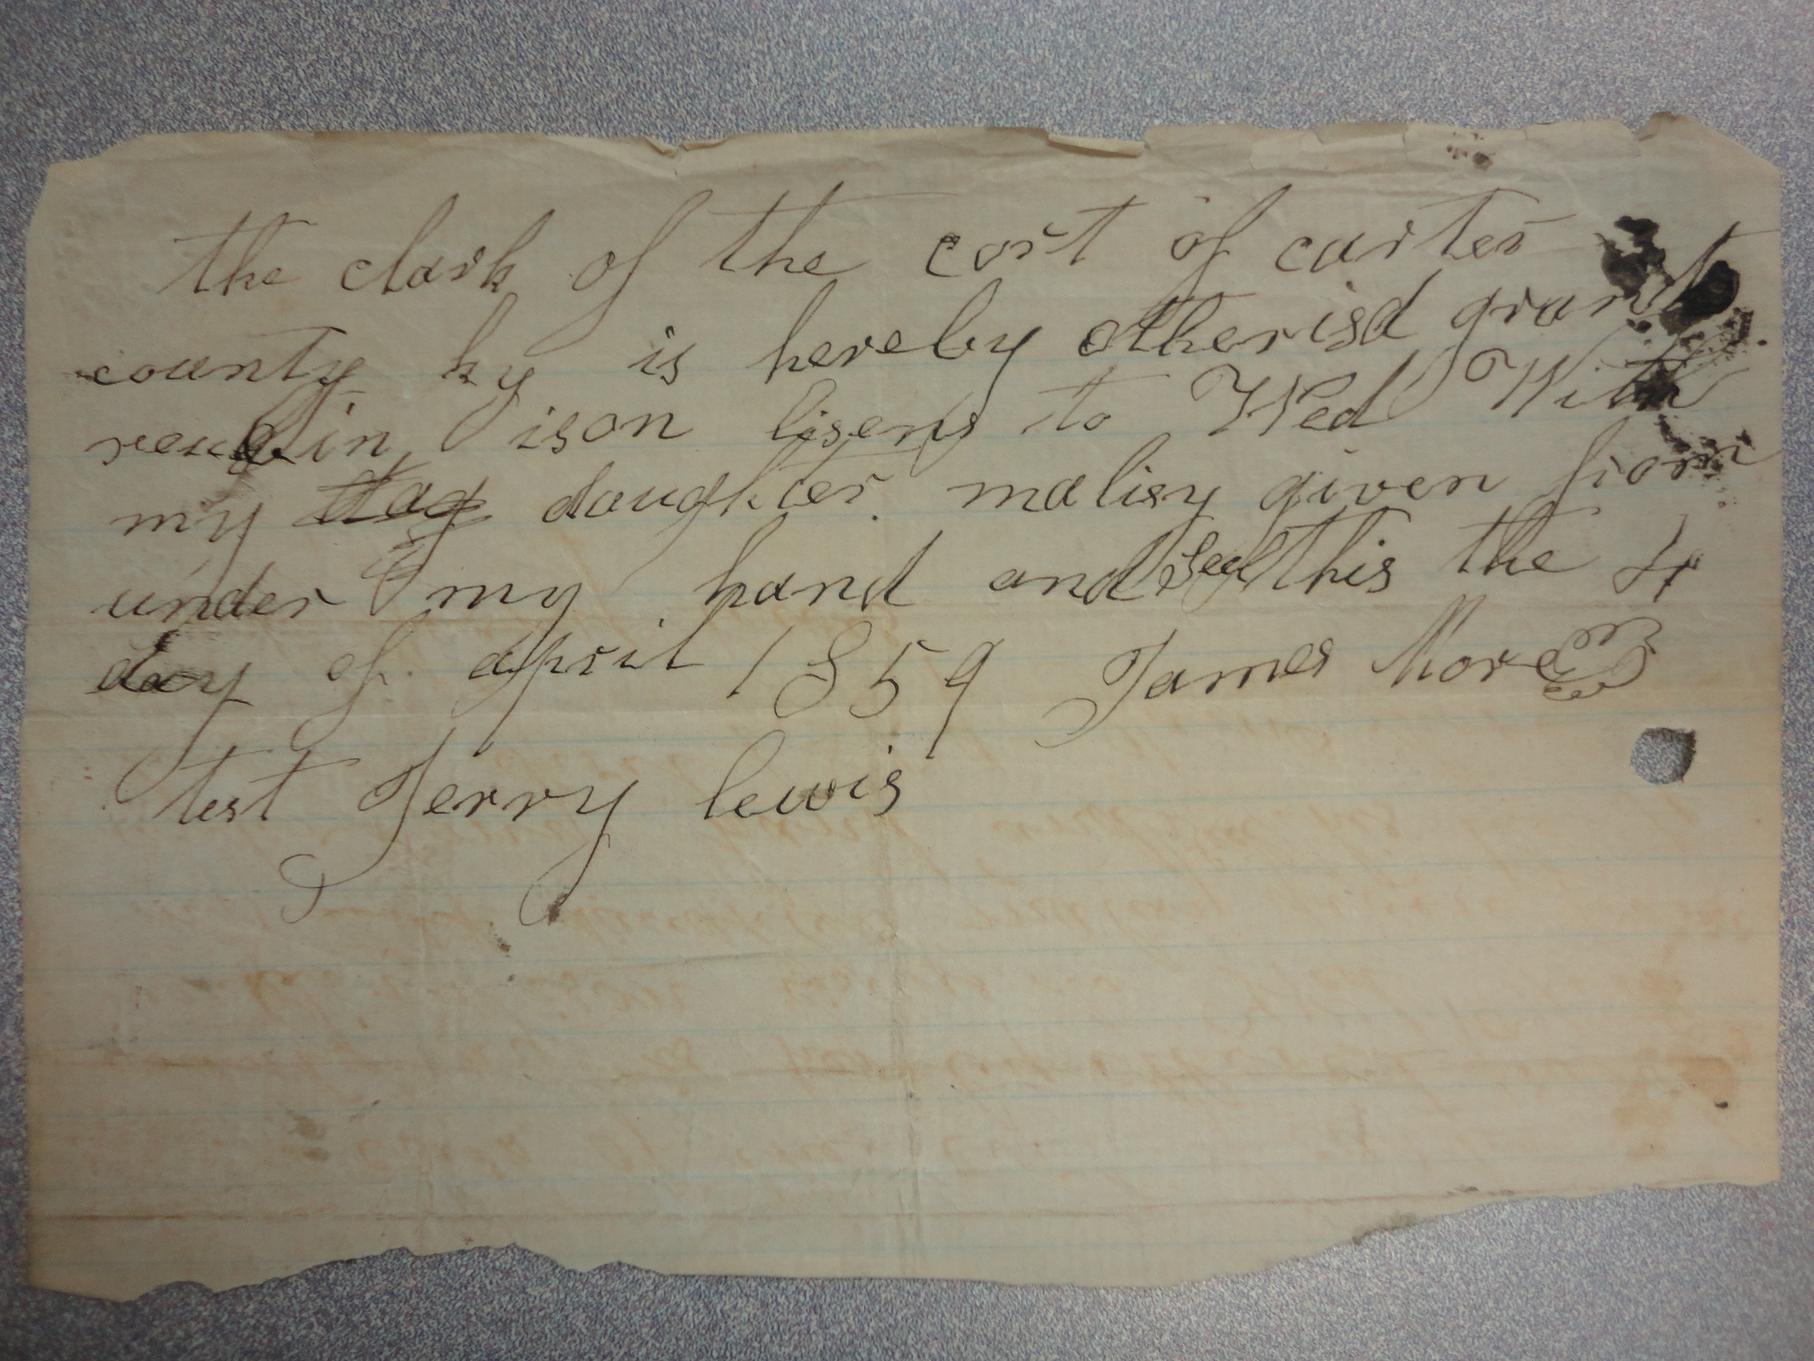 the clark of the cort of carter
county ky is hereby otherisd grant
reubin ison lisens to Wed With
my daughter malisy given from
under my hand and seal this the 4
day of april 1859 James More
test Jerry lewis